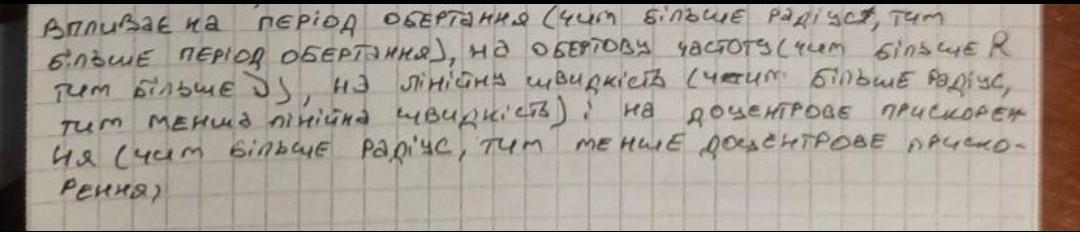 впливає на період обертання (чим більше радіус, тим
більше період обертання), на обертову частоту (чим більше R
тим більше ν), на лінійну швидкість (чим більше радіус,
тим менша лінійна швидкість) і на доцентрове прискорен
ня (чим більше радіус, тим менше доцентрове приско-
рення)